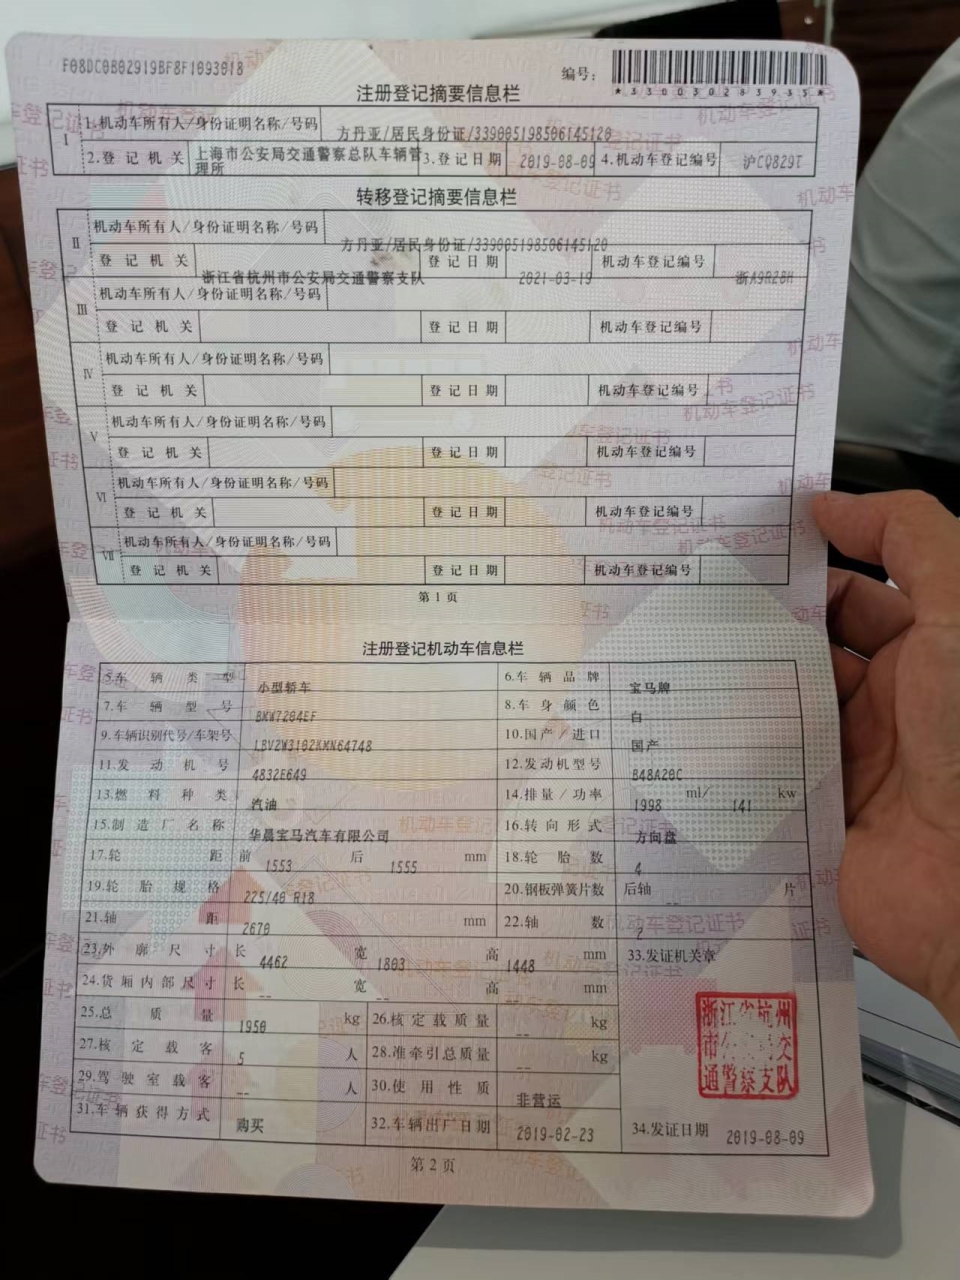 F08DC0B02919BF8F1093018
编号：
*330003283935*
注册登记摘要信息栏
I
1.机动车所有人/身份证明名称/号码 方丹亚/居民身份证/339005198506145120
2.登记机关 上海市公安局交通警察总队车辆管理所 3.登记日期 2019-08-09 4.机动车登记编号 沪CQ829T
转移登记摘要信息栏
II
机动车所有人/身份证明名称/号码 方丹亚/居民身份证/339005198506145120
登记机关 浙江省杭州市公安局交通警察支队 登记日期 2021-03-19 机动车登记编号
III
机动车所有人/身份证明名称/号码
登记机关 登记日期 机动车登记编号
IV
机动车所有人/身份证明名称/号码
登记机关 登记日期 机动车登记编号
V
机动车所有人/身份证明名称/号码
登记机关 登记日期 机动车登记编号
VI
机动车所有人/身份证明名称/号码
登记机关 登记日期 机动车登记编号
VII
机动车所有人/身份证明名称/号码
登记机关 登记日期 机动车登记编号
第1页
注册登记机动车信息栏
5.车辆类型 小型轿车 6.车辆品牌 宝马牌
7.车辆型号 BMW7204EF 8.车身颜色 白
9.车辆识别代号/车架号 LBV2W3102KMN64748 10.国产/进口 国产
11.发动机号 4832E649 12.发动机型号 B48A20C
13.燃料种类 汽油 14.排量/功率 1998 ml/ 141 kw
15.制造厂名称 华晨宝马汽车有限公司 16.转向形式 方向盘
17.轮距 前 1553 后 1555 mm 18.轮胎数 4
19.轮胎规格 225/40 R18 20.钢板弹簧片数 后轴 -- 片
21.轴距 2670 mm 22.轴数 2
23.外廓尺寸 长 4462 宽 1803 高 1448 mm 33.发证机关章
24.货厢内部尺寸 长 -- 宽 -- 高 -- mm
25.总质量 1950 kg 26.核定载质量 -- kg
27.核定载客 5 人 28.准牵引总质量 -- kg
29.驾驶室载客 -- 人 30.使用性质 非营运
31.车辆获得方式 购买 32.车辆出厂日期 2019-02-23 34.发证日期 2019-08-09
浙江省杭州
市公 交
通警察支队
第2页